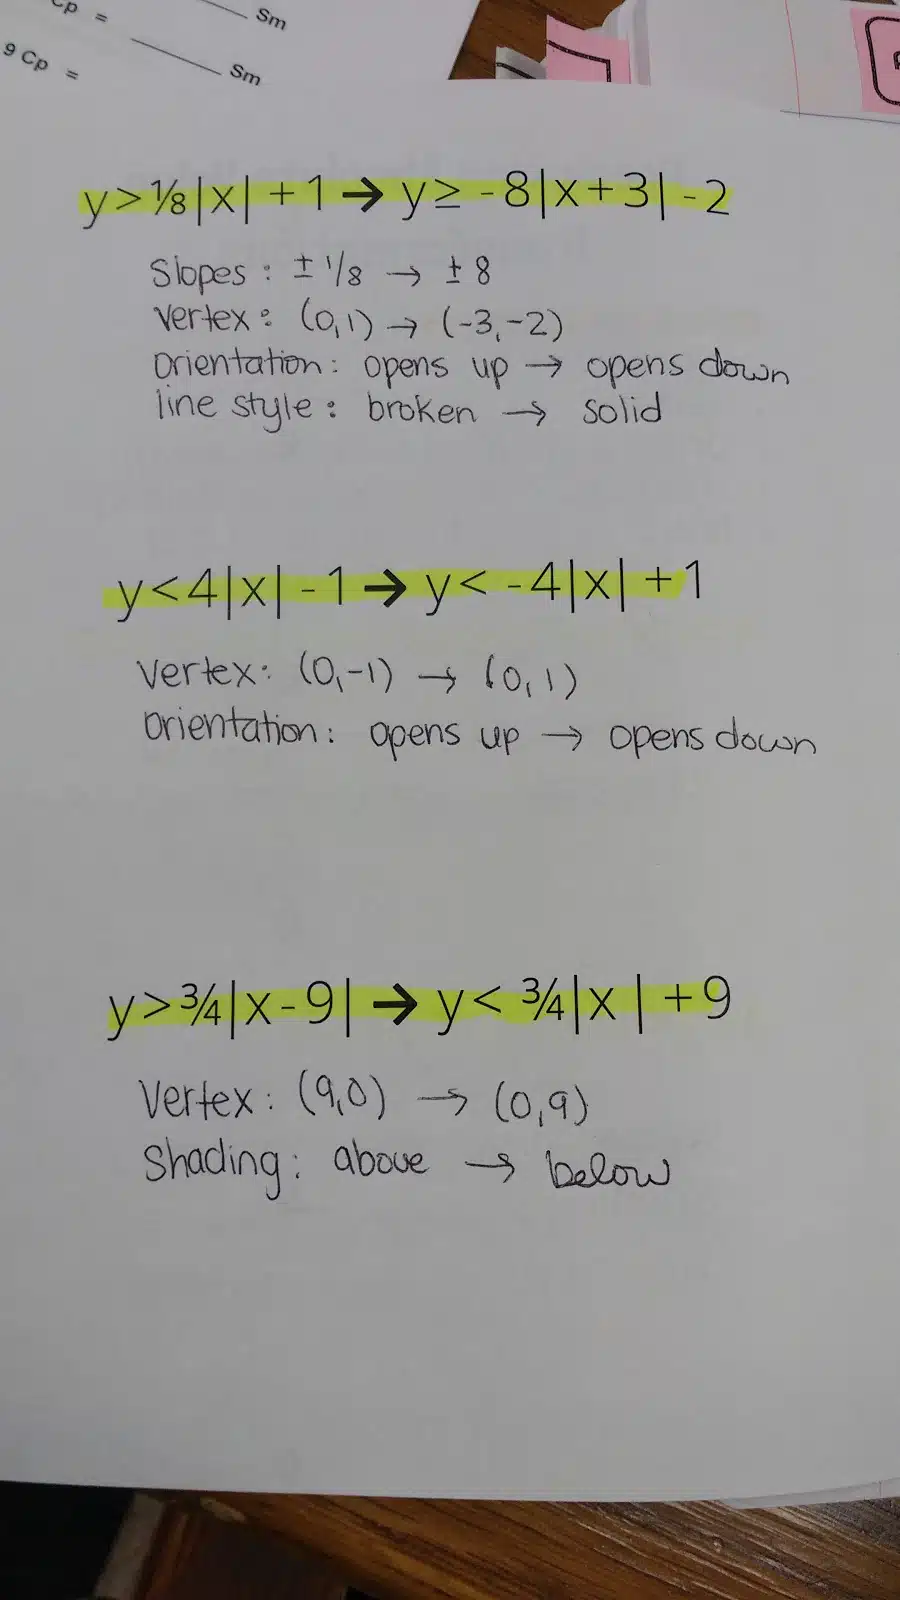 Cp = ____ Sm
9 Cp = ____ Sm
y>⅛|x|+1→y≥-8|x+3|-2
Slopes: ±1/8 → ±8
Vertex: (0,1) → (-3,-2)
Orientation: opens up → opens down
line style: broken → solid
y<4|x|-1→y<-4|x|+1
Vertex: (0,-1) → (0,1)
Orientation: opens up → opens down
y>¾|x-9|→y<¾|x|+9
Vertex: (9,0) → (0,9)
Shading: above → below